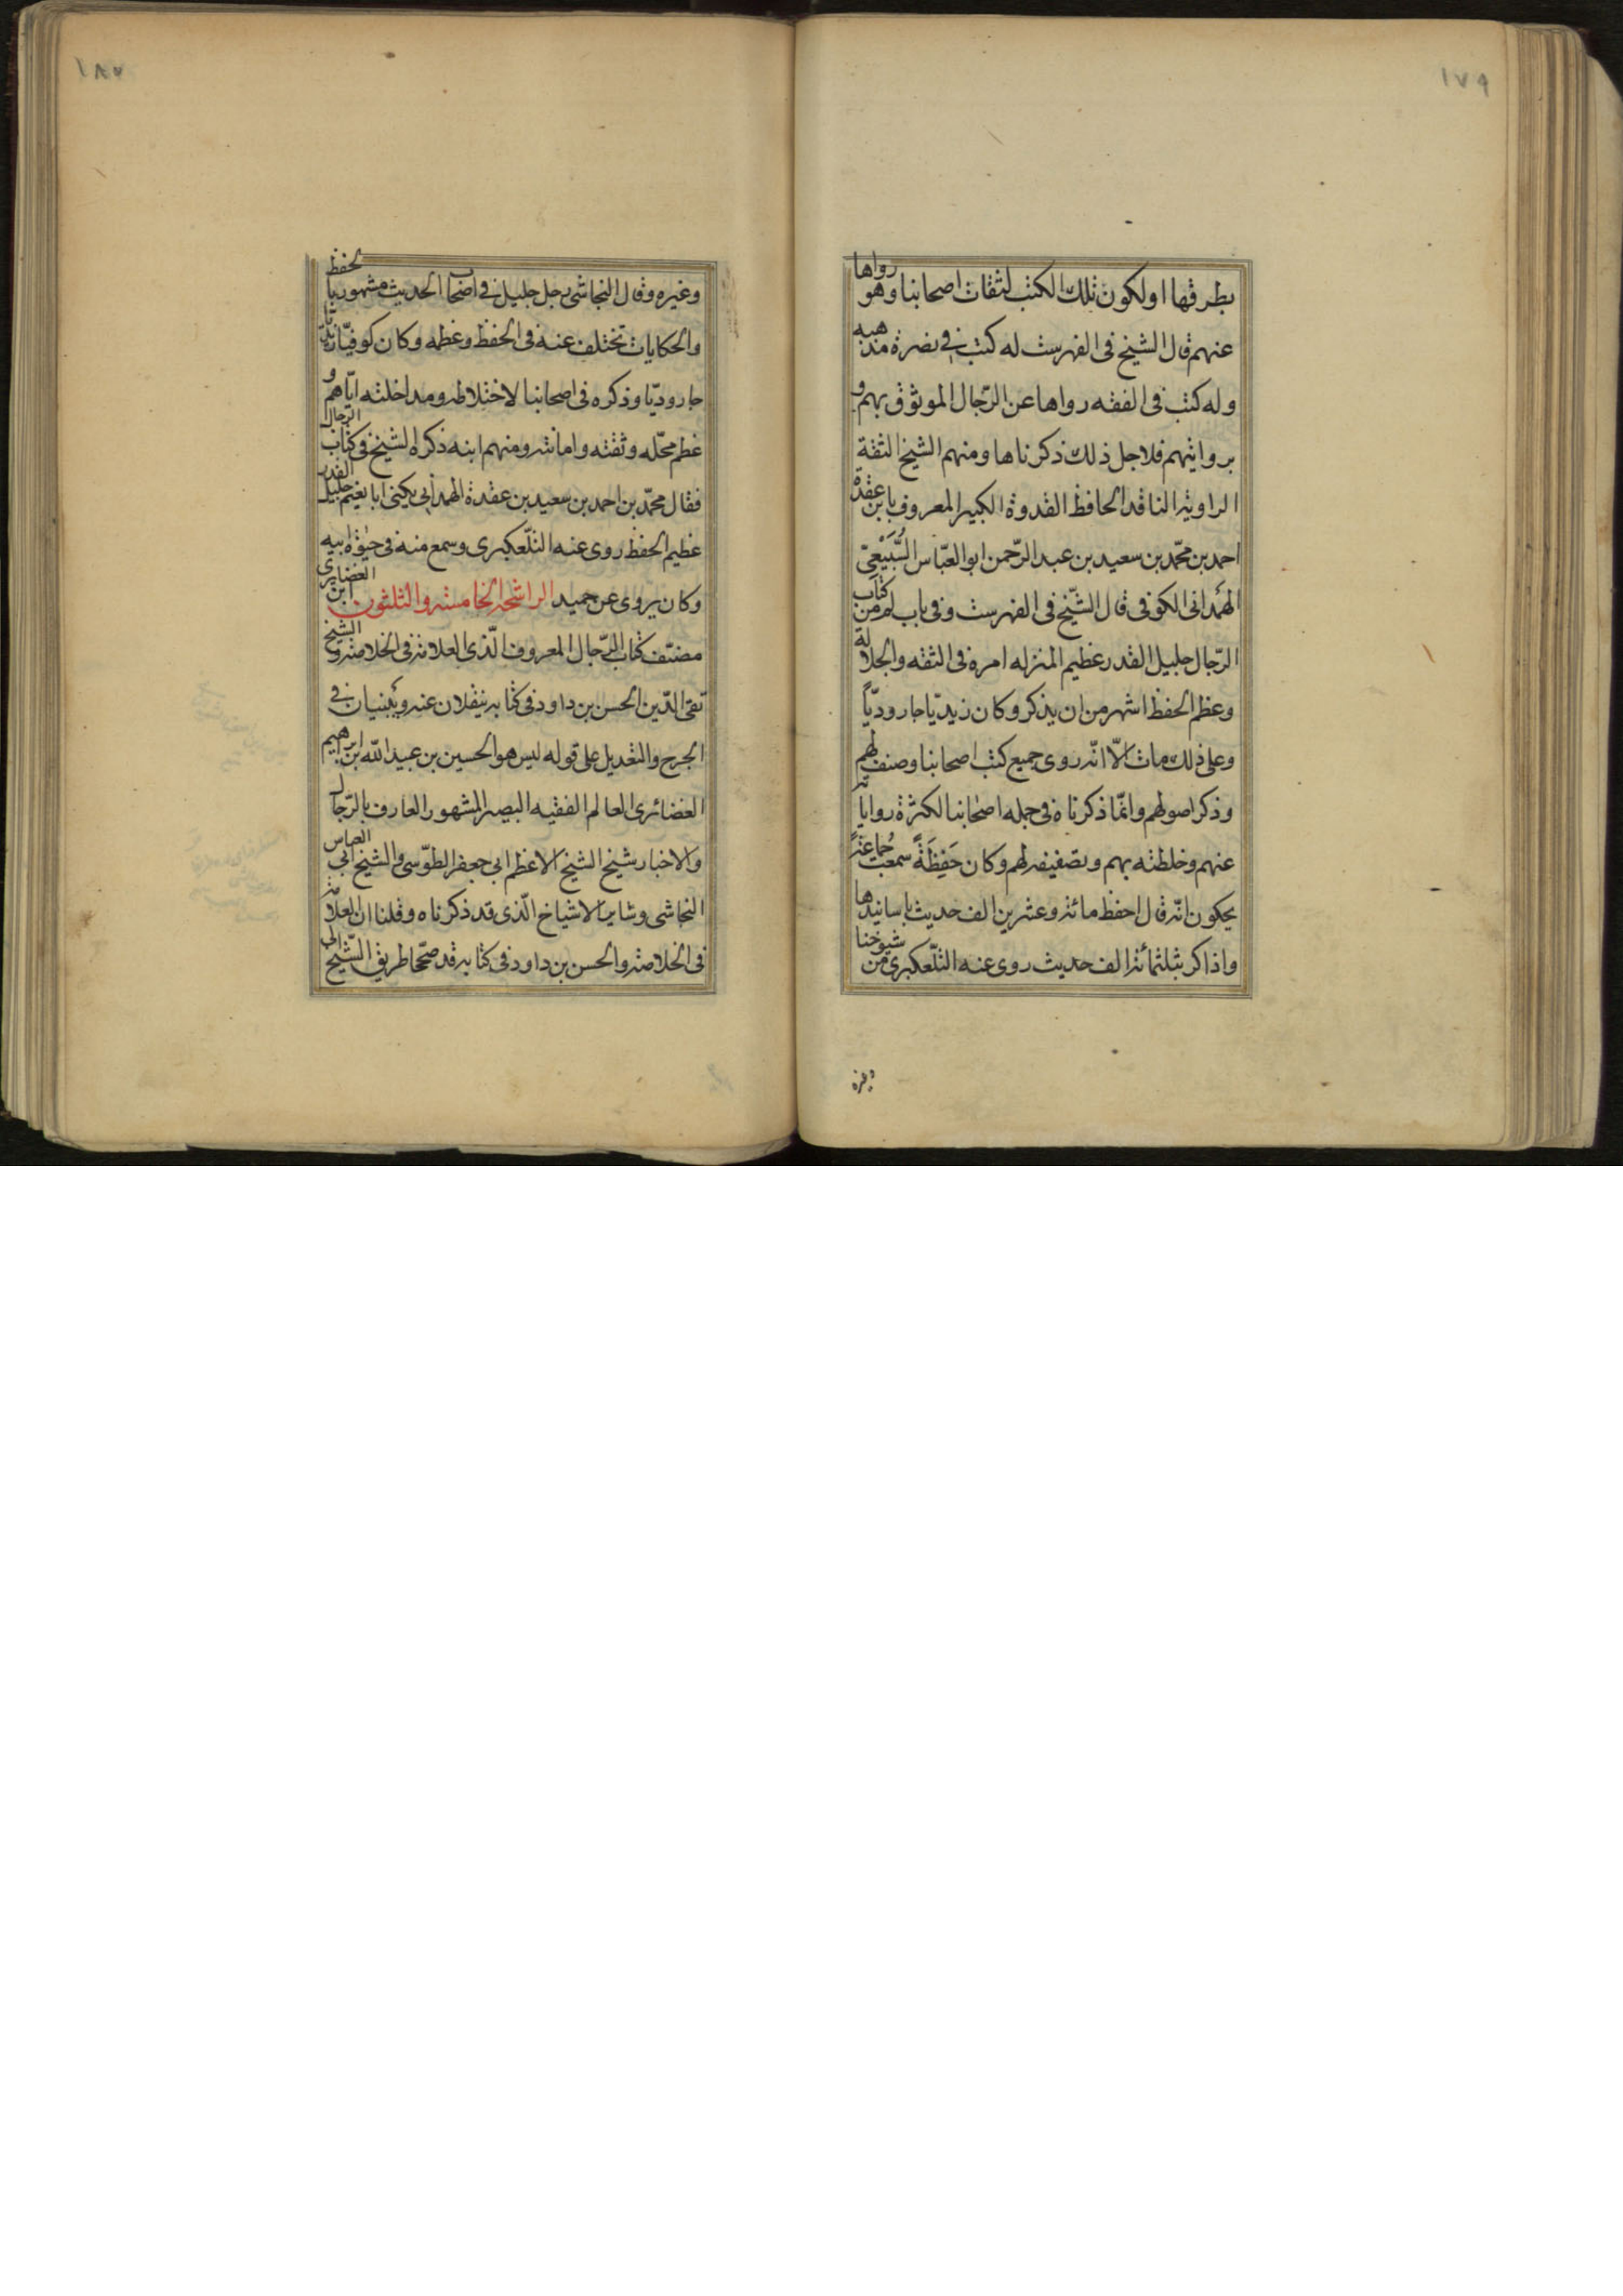 ١٧٩
بطرقها او لكون تلك الكتب لثقات اصحابنا وهو رواها
عنهم قال الشيخ فى الفهرست له كتب فى نصرة مذهبه
وله كتب فى الفقه رواها عن الرّجال الموثوق بهم و
برواتيهم فلاجل ذلك ذكرناها ومنهم الشيخ الثقة
الراوية الناقد الحافظ القدوة الكبير المعروف بابن عقدة
احمد بن محمّد بن سعيد بن عبد الرّحمن ابو العبّاس السَّبيْعىّ
الهمدانى الكوفى قال الشّيخ فى الفهرست وفى باب لم من كتاب
الرّجال جليل القدر عظيم المنزله امره فى الثقه والجلالة
وعظم الحفظ اشهر من ان يذكر وكان زيديّا جاروديّاً
وعلى ذلك مات الّا انّه روى جميع كتب اصحابنا وصنف لهم
وذكر اصولهم وانّما ذكرناه فى جمله اصحابنا لكثرة رواياته
عنهم وخلطته بهم وتصنيفه لهم وكان حَفِظَةً سمعت جُماعةً
يحكون انّه قال احفظ مائة وعشرين الف حديث باسانيدها
واذاكر بثلثمائة الف حديث روى عنه التلّعكبرى من شيوخنا
وغيره
١٨٠
وغيره وقال النجاشى رجل جليل فى اصحاب الحديث مشهور بالحفظ
والحكايات تختلف عنه فى الحفظ وعظمه وكان كوفيّا زيديّا
جاروديّا وذكره فى اصحابنا لاختلاطه ومداخلته ايّاهم و
عظم محلّه وثقته وامانته ومنهم ابنه ذكره الشيخ فى كتاب الرّجال
فقال محمّد بن احمد بن سعيد بن عقدة الهمدانى يكنى ابا نعيم جليل القدر
عظيم الحفظ روى عنه التلّعكبرى وسمع منه فى حيٰوة ابيه
وكان يروى عن حميد الراشحة الخامسة والثلثون ابن الغضايرى
مصنّف كتاب الرّجال المعروف الّذى العلامة فى الخلاصة والشيخ
تقى الدّين الحسن بن داود فى كتابه ينقلان عنه ويبنيان فى
الجرح والتعديل على قوله ليس هو الحسين بن عبيد الله بن ابرهيم
الغضائرى العالم الفقيه البصير المشهور العارف بالرّجال
والاخبار شيخ الشيخ الاعظم ابى جعفر الطوّسى والشيخ ابى العباس
النجاشى وساير الاشياخ الّذى قد ذكرناه وقلنا ان العلامة
فى الخلاصة والحسن بن داود فى كتابه قد صحّحا طريق الشّيخ الى